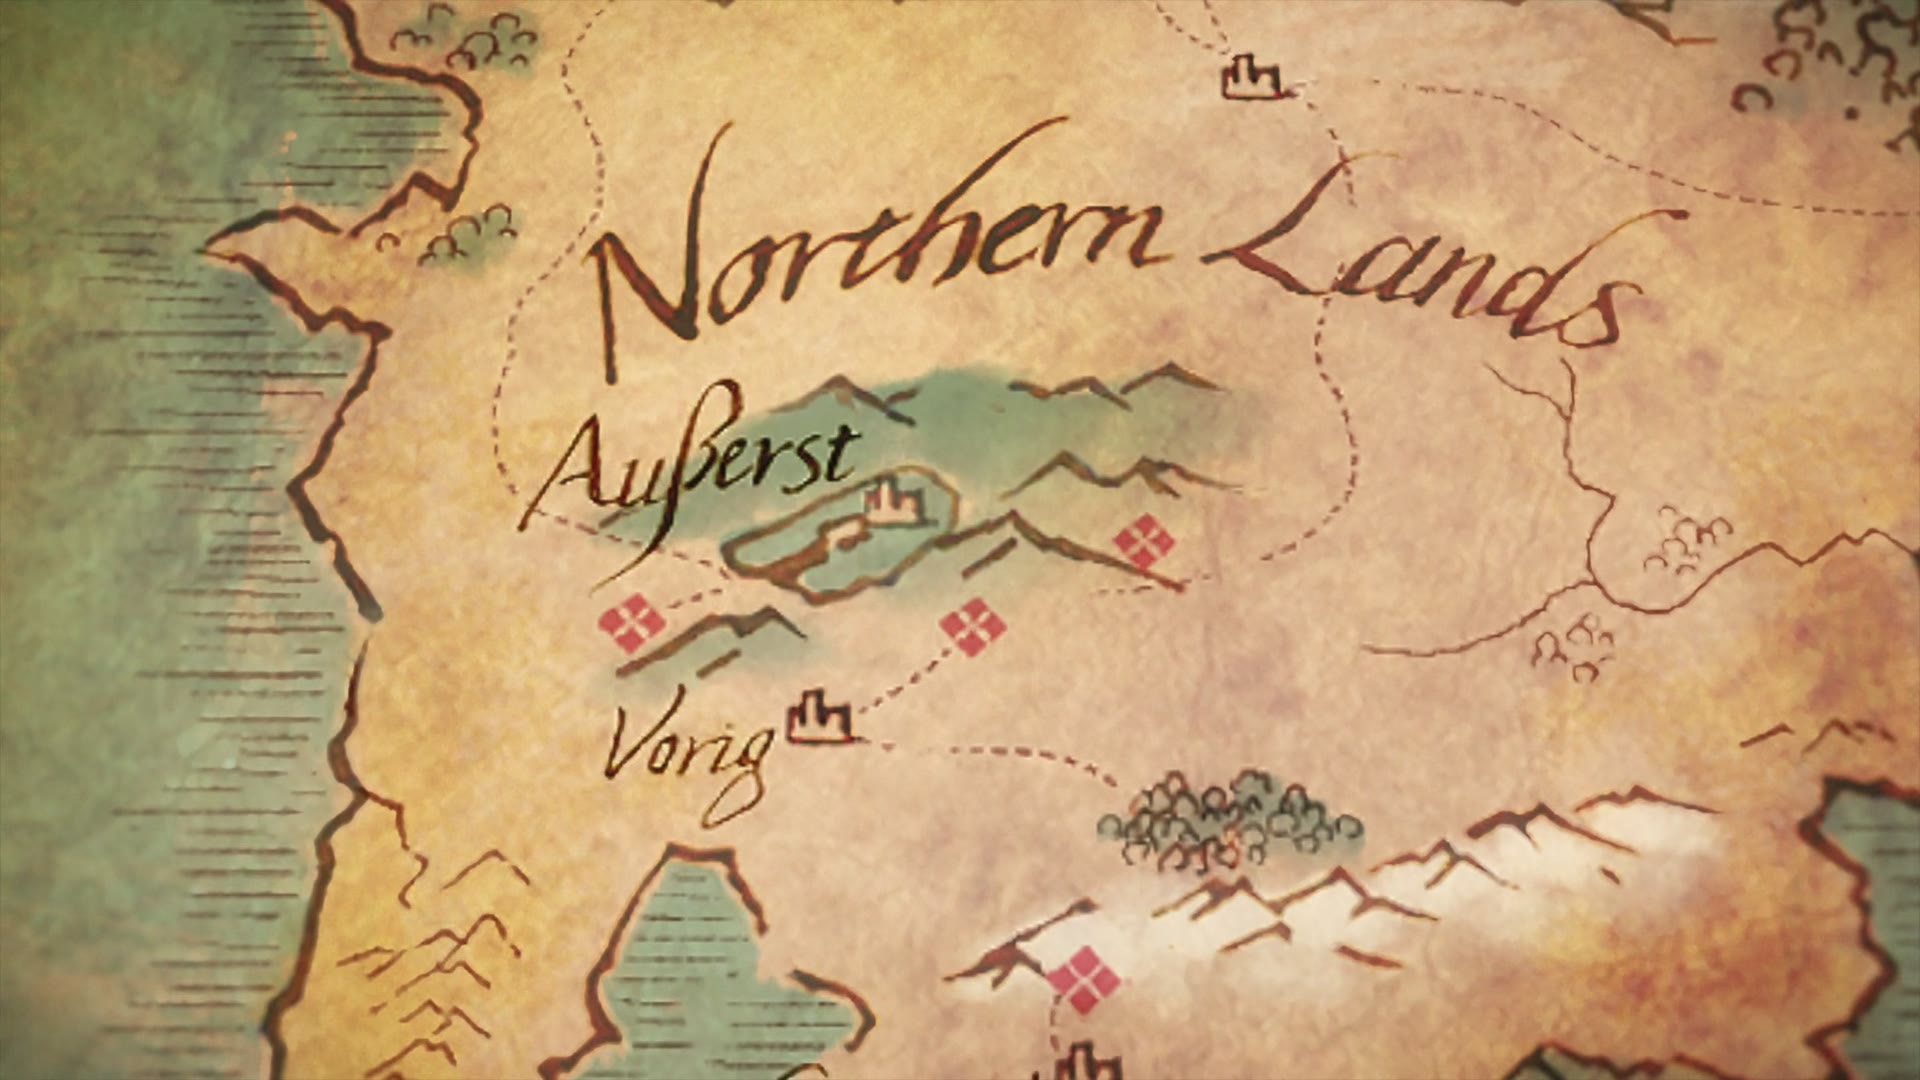 Northern Lands
Außerst
Vorig